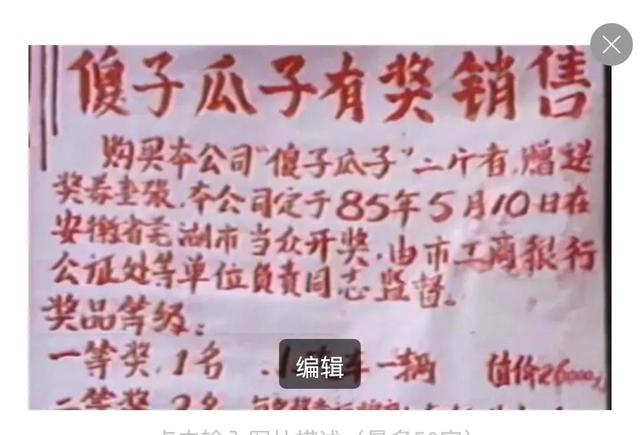 傻子瓜子有奖销售
购买本公司“傻子瓜子”二斤者，赠送
奖券壹張，本公司定于85年5月10日在
安徽省芜湖市当众开奖，由市工商银行
公证处等单位负责同志监督。
奖品等级：
一等奖，1名 编辑 车一辆 值价26000元
二等奖 2名